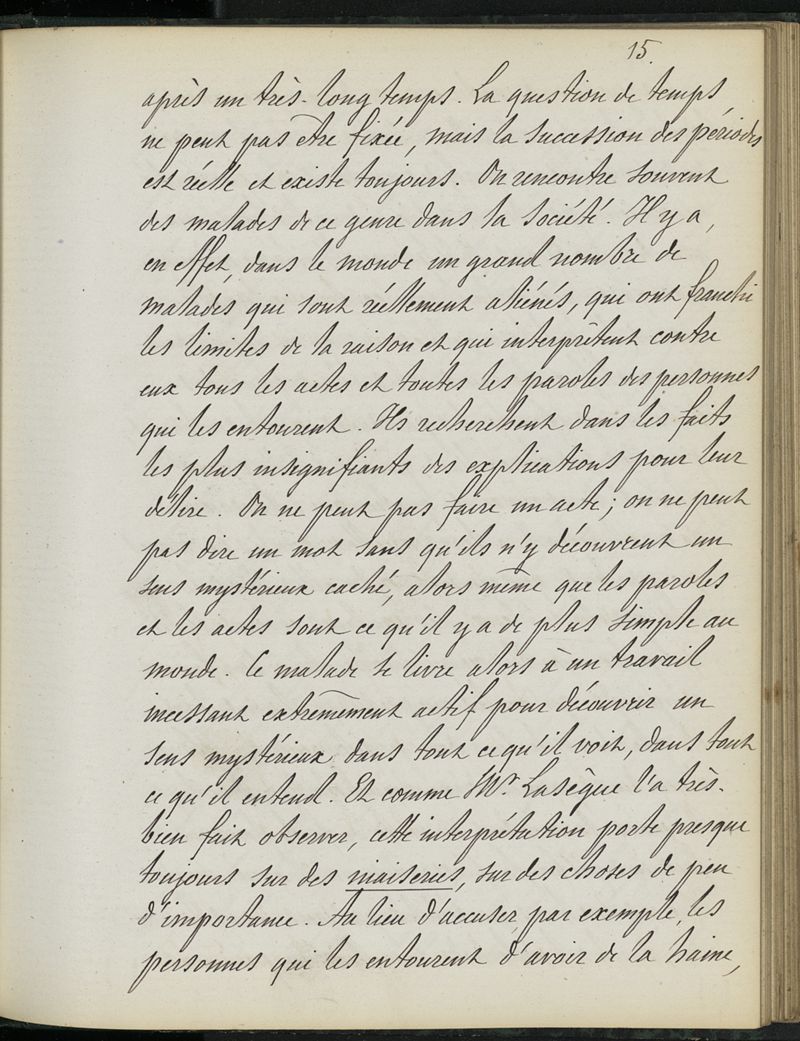 15.
après un très-long temps. La question de temps
ne peut pas être fixée, mais la succession des périodes
est réelle et existe toujours. On rencontre souvent
des malades de ce genre dans la société. Il y a,
en effet, dans le monde un grand nombre de
malades qui sont réellement aliénés, qui ont franchi
les limites de la raison et qui interprètent contre
eux tous les actes et toutes les paroles des personnes
qui les entourent. Ils recherchent dans les faits
les plus insignifiants des explications pour leur
délire. On ne peut pas faire un acte; on ne peut
pas dire un mot sans qu'ils n'y découvrent un
sens mystérieux caché, alors même que les paroles
et les actes sont ce qu'il y a de plus simple au
monde. Ce malade se livre alors à un travail
incessant extrêmement actif pour découvrir un
sens mystérieux dans tout ce qu'il voit, dans tout
ce qu'il entend. Et comme Mr. Lasègue l'a très-
bien fait observer, cette interprétation porte presque
toujours sur des niaiseries, sur des choses de peu
d'importance. Au lieu d'accuser, par exemple, les
personnes qui les entourent d'avoir de la haine,